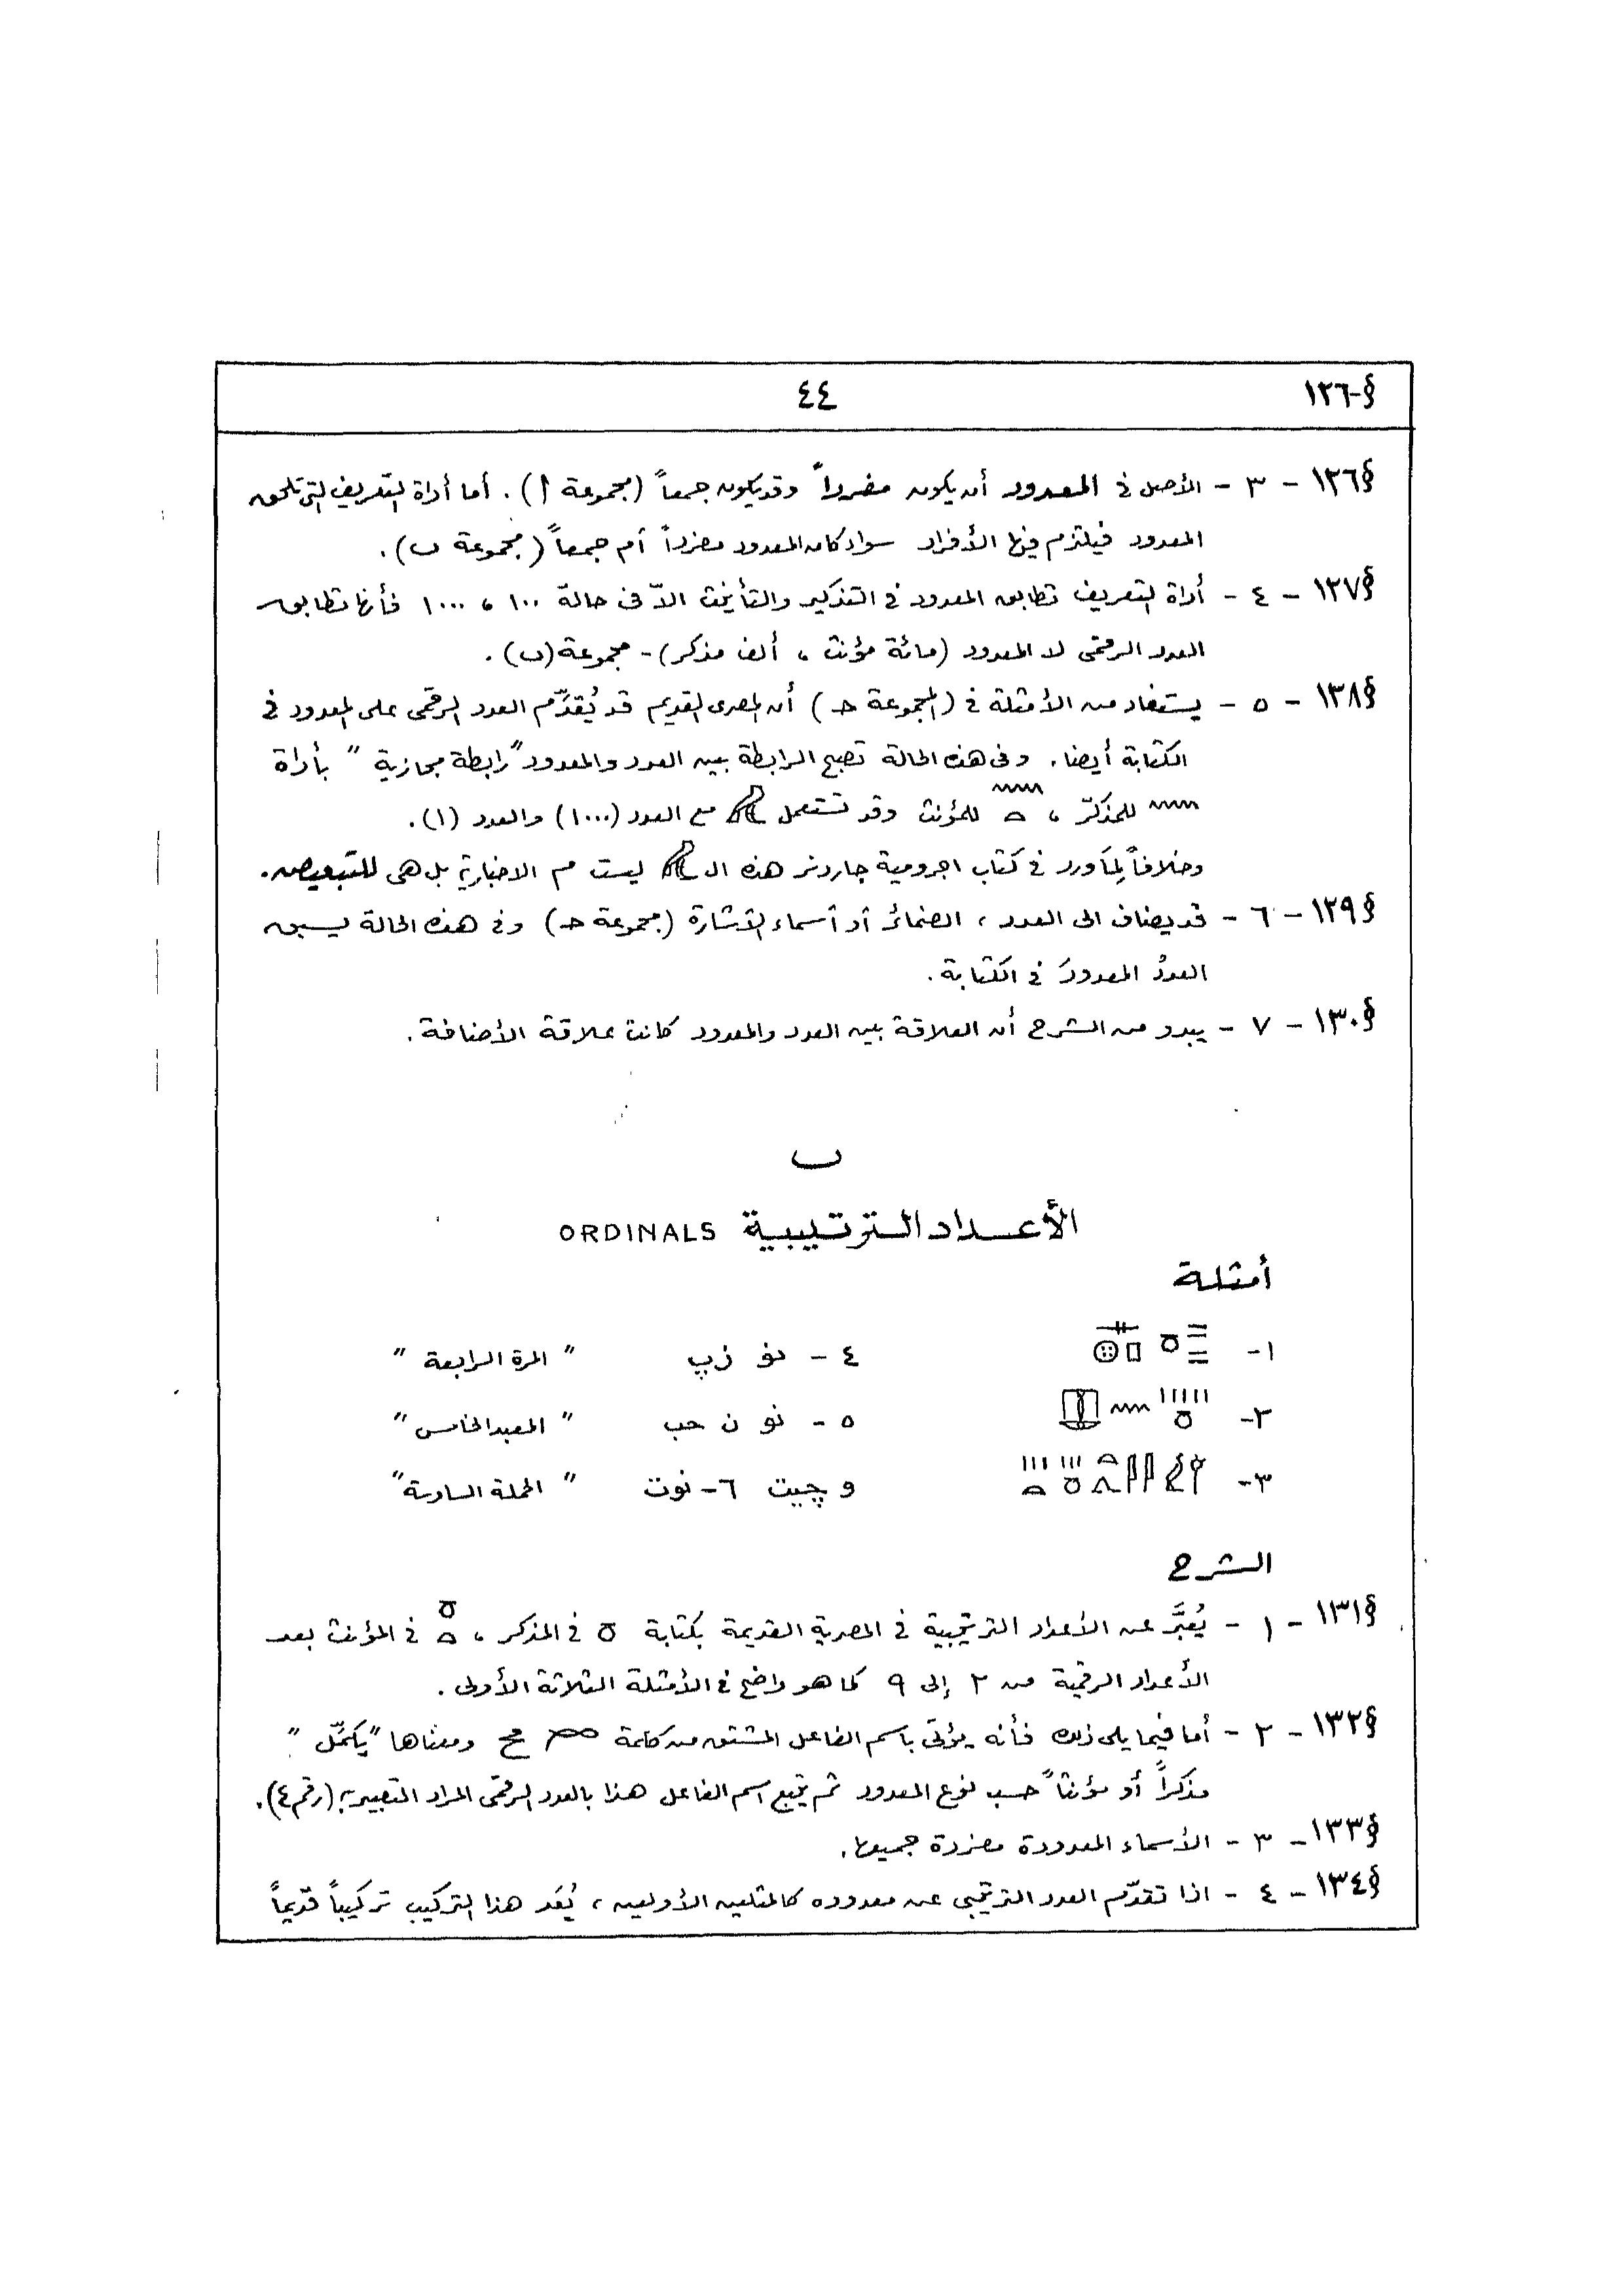 §-١٢٦ ٤٤
§١٢٦ - ٣ - الأصل في المعدود أن يكون مفرداً وقد يكون جمعاً (مجموعة أ). أما أداة التعريف التي تلحق
المعدود فيلتزم فيها الأفراد سواء كان المعدود مفرداً أم جمعاً (مجموعة ب).
§١٢٧ - ٤ - أداة التعريف تطابق المعدود في التذكير والتأنيث الاّ في حالة ١٠٠ ، ١٠٠٠ فأنها تطابق
العدد الرقمي لا المعدود (مائة مؤنث ، ألف مذكر) - مجموعة (ب).
§١٣٨ - ٥ - يستفاد من الأمثلة في (المجموعة حـ) أن المصرى القديم قد يُقدَّم العدد الرقمى على المعدود في
الكتابة أيضا. وفى هذه الحالة تصبح الرابطة بين العدد والمعدود "رابطة مجازية" بأداة
للمذكّر ، للمؤنث وقد تستعمل مع العدد (١٠٠٠) والعدد (١).
وخلافاً لِمَا ورد في كتاب اجرومية جاردنر هذه الـ ليست م الاخبارية بل هى للتبعيض.
§١٢٩ - ٦ - قد يضاف الى العدد ، الضمائر أو أسماء الأشارة (مجموعة حـ) وفى هذه الحالة يسبق
العددُ المعدودَ في الكتابة.
§١٣٠ - ٧ - يبدو من الشرح أن العلاقة بين العدد والمعدود كانت علاقة الأضافة.
ب
الأعداد الترتيبية ORDINALS
أمثلة
١- ٤ - نو زپ "المرة الرابعة"
٢- ٥ - نو ن حب "العيد الخامس"
٣- وچيت ٦ - نوت "الحملة السادسة"
الشرح
§١٣١ - ١ - يُعبَّر عن الأعداد الترتيبية في المصرية القديمة بكتابة في المذكر ، في المؤنث بعد
الأعداد الرقمية من ٢ إلى ٩ كما هو واضح في الأمثلة الثلاثة الأولى.
§١٣٢ - ٢ - أما فيما يلى ذلك فأنه يؤتى باسم الفاعل المشتق من كلمة مح ومعناها "يكمّل"
مذكراً أو مؤنثاً حسب نوع المعدود ثم يتبع اسم الفاعل هذا بالعدد الرقمى المراد التعبير به (رقم ٤).
§١٣٣ - ٣ - الأسماء المعدودة مفردة جميعها.
§١٣٤ - ٤ - اذا تقدّم العدد الترتيبى عن معدوده كالمثلين الأولين ، يُعَد هذا التركيب تركيباً قديماً